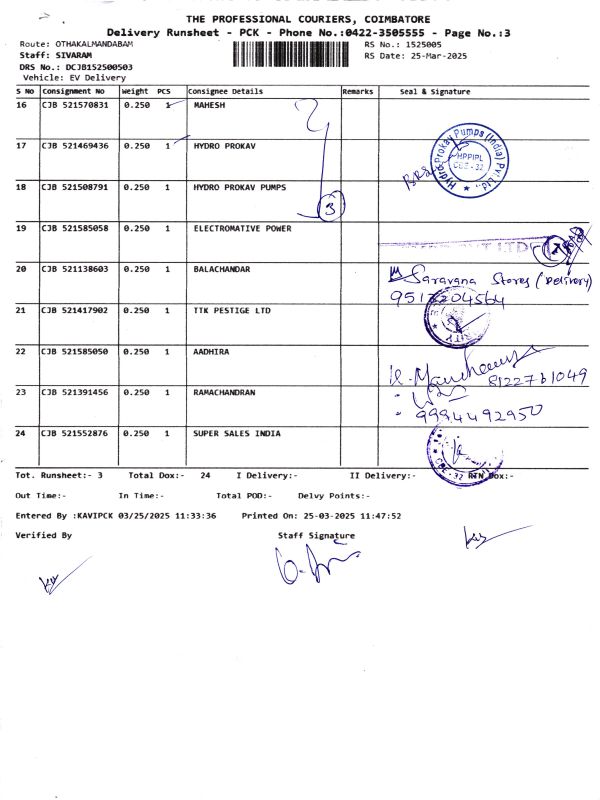 THE PROFESSIONAL COURIERS, COIMBATORE
Delivery Runsheet - PCK - Phone No.:0422-3505555 - Page No.:3
Route: OTHAKALMANDABAM
RS No.: 1525005
Staff: SIVARAM
RS Date: 25-Mar-2025
DRS No.: DCJB152500503
Vehicle: EV Delivery
S No Consignment No Weight PCS Consignee Details Remarks Seal & Signature
16 CJB 521570831 0.250 1 MAHESH
17 CJB 521469436 0.250 1 HYDRO PROKAV
Hydro Prokav Pumps (India) Pvt Ltd.,
HPPIPL
CBE - 32
18 CJB 521508791 0.250 1 HYDRO PROKAV PUMPS
3
19 CJB 521585058 0.250 1 ELECTROMATIVE POWER
20 CJB 521138603 0.250 1 BALACHANDAR
Saravana Stores (Delivery)
21 CJB 521417902 0.250 1 TTK PESTIGE LTD
22 CJB 521585050 0.250 1 AADHIRA
8122761049
23 CJB 521391456 0.250 1 RAMACHANDRAN
9994492950
24 CJB 521552876 0.250 1 SUPER SALES INDIA
CBE - 32
Tot. Runsheet:- 3 Total Dox:- 24 I Delivery:- II Delivery:- RTN Dox:-
Out Time:- In Time:- Total POD:- Delvy Points:-
Entered By :KAVIPCK 03/25/2025 11:33:36 Printed On: 25-03-2025 11:47:52
Verified By Staff Signature